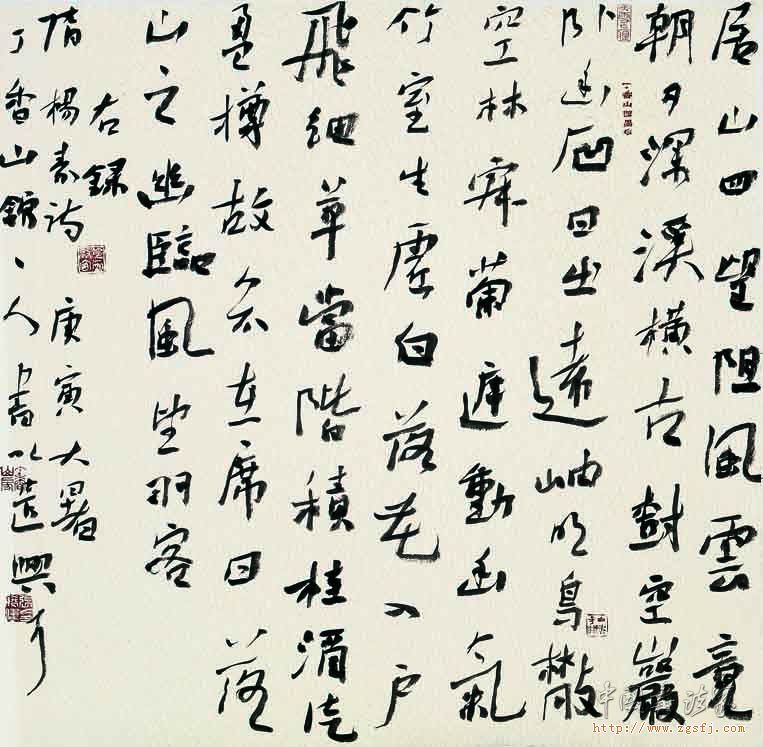 居山四望阻風雲竟
朝夕深溪横古樹空巖
卧幽石日出遠岫明鳥散
空林寂蘭庭動幽氣
竹室生虛白落花入户
飛細草當階積桂酒徒
盈樽故人不在席日落
山之幽臨風望羽客
右録
隋楊素詩 庚寅大暑
丁香山館人書以遣興
http://www.zgsfj.com